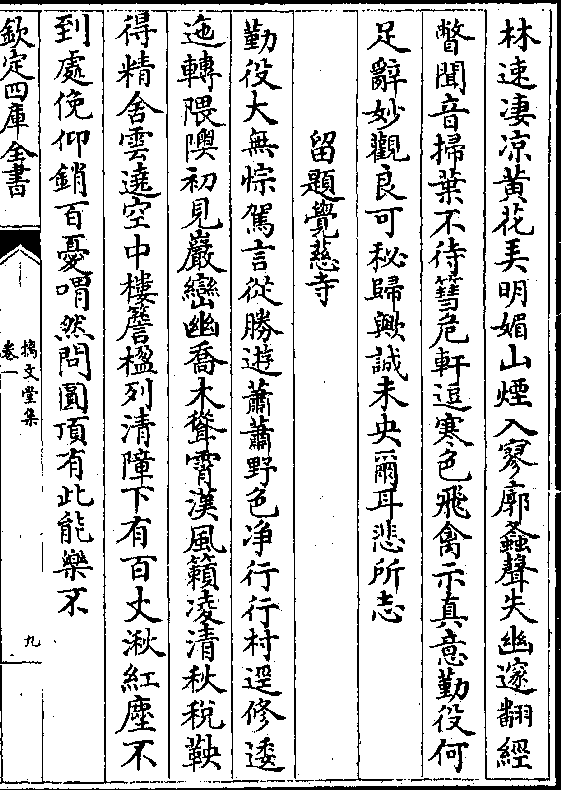 林速淒凉黄花美明媚山煙入寥廓螽聲失幽邃翻經
瞥聞音掃葉不待篲危軒逗寒色飛禽示真意勤役何
足辭妙觀良可秘歸歟誠未央爾耳悲所志
留題覺慈寺
勤役大無悰駕言從勝遊蕭蕭野色净行行村逕修逶
迤轉隈隩初見巖巒幽喬木聳霄漢風籟凌清秋税鞅
得精舍雲遶空中樓簷楹列清障下有百丈湫紅塵不
到處俛仰銷百憂喟然問圓頂有此能樂不
欽定四庫全書
摛文堂集
卷一
九